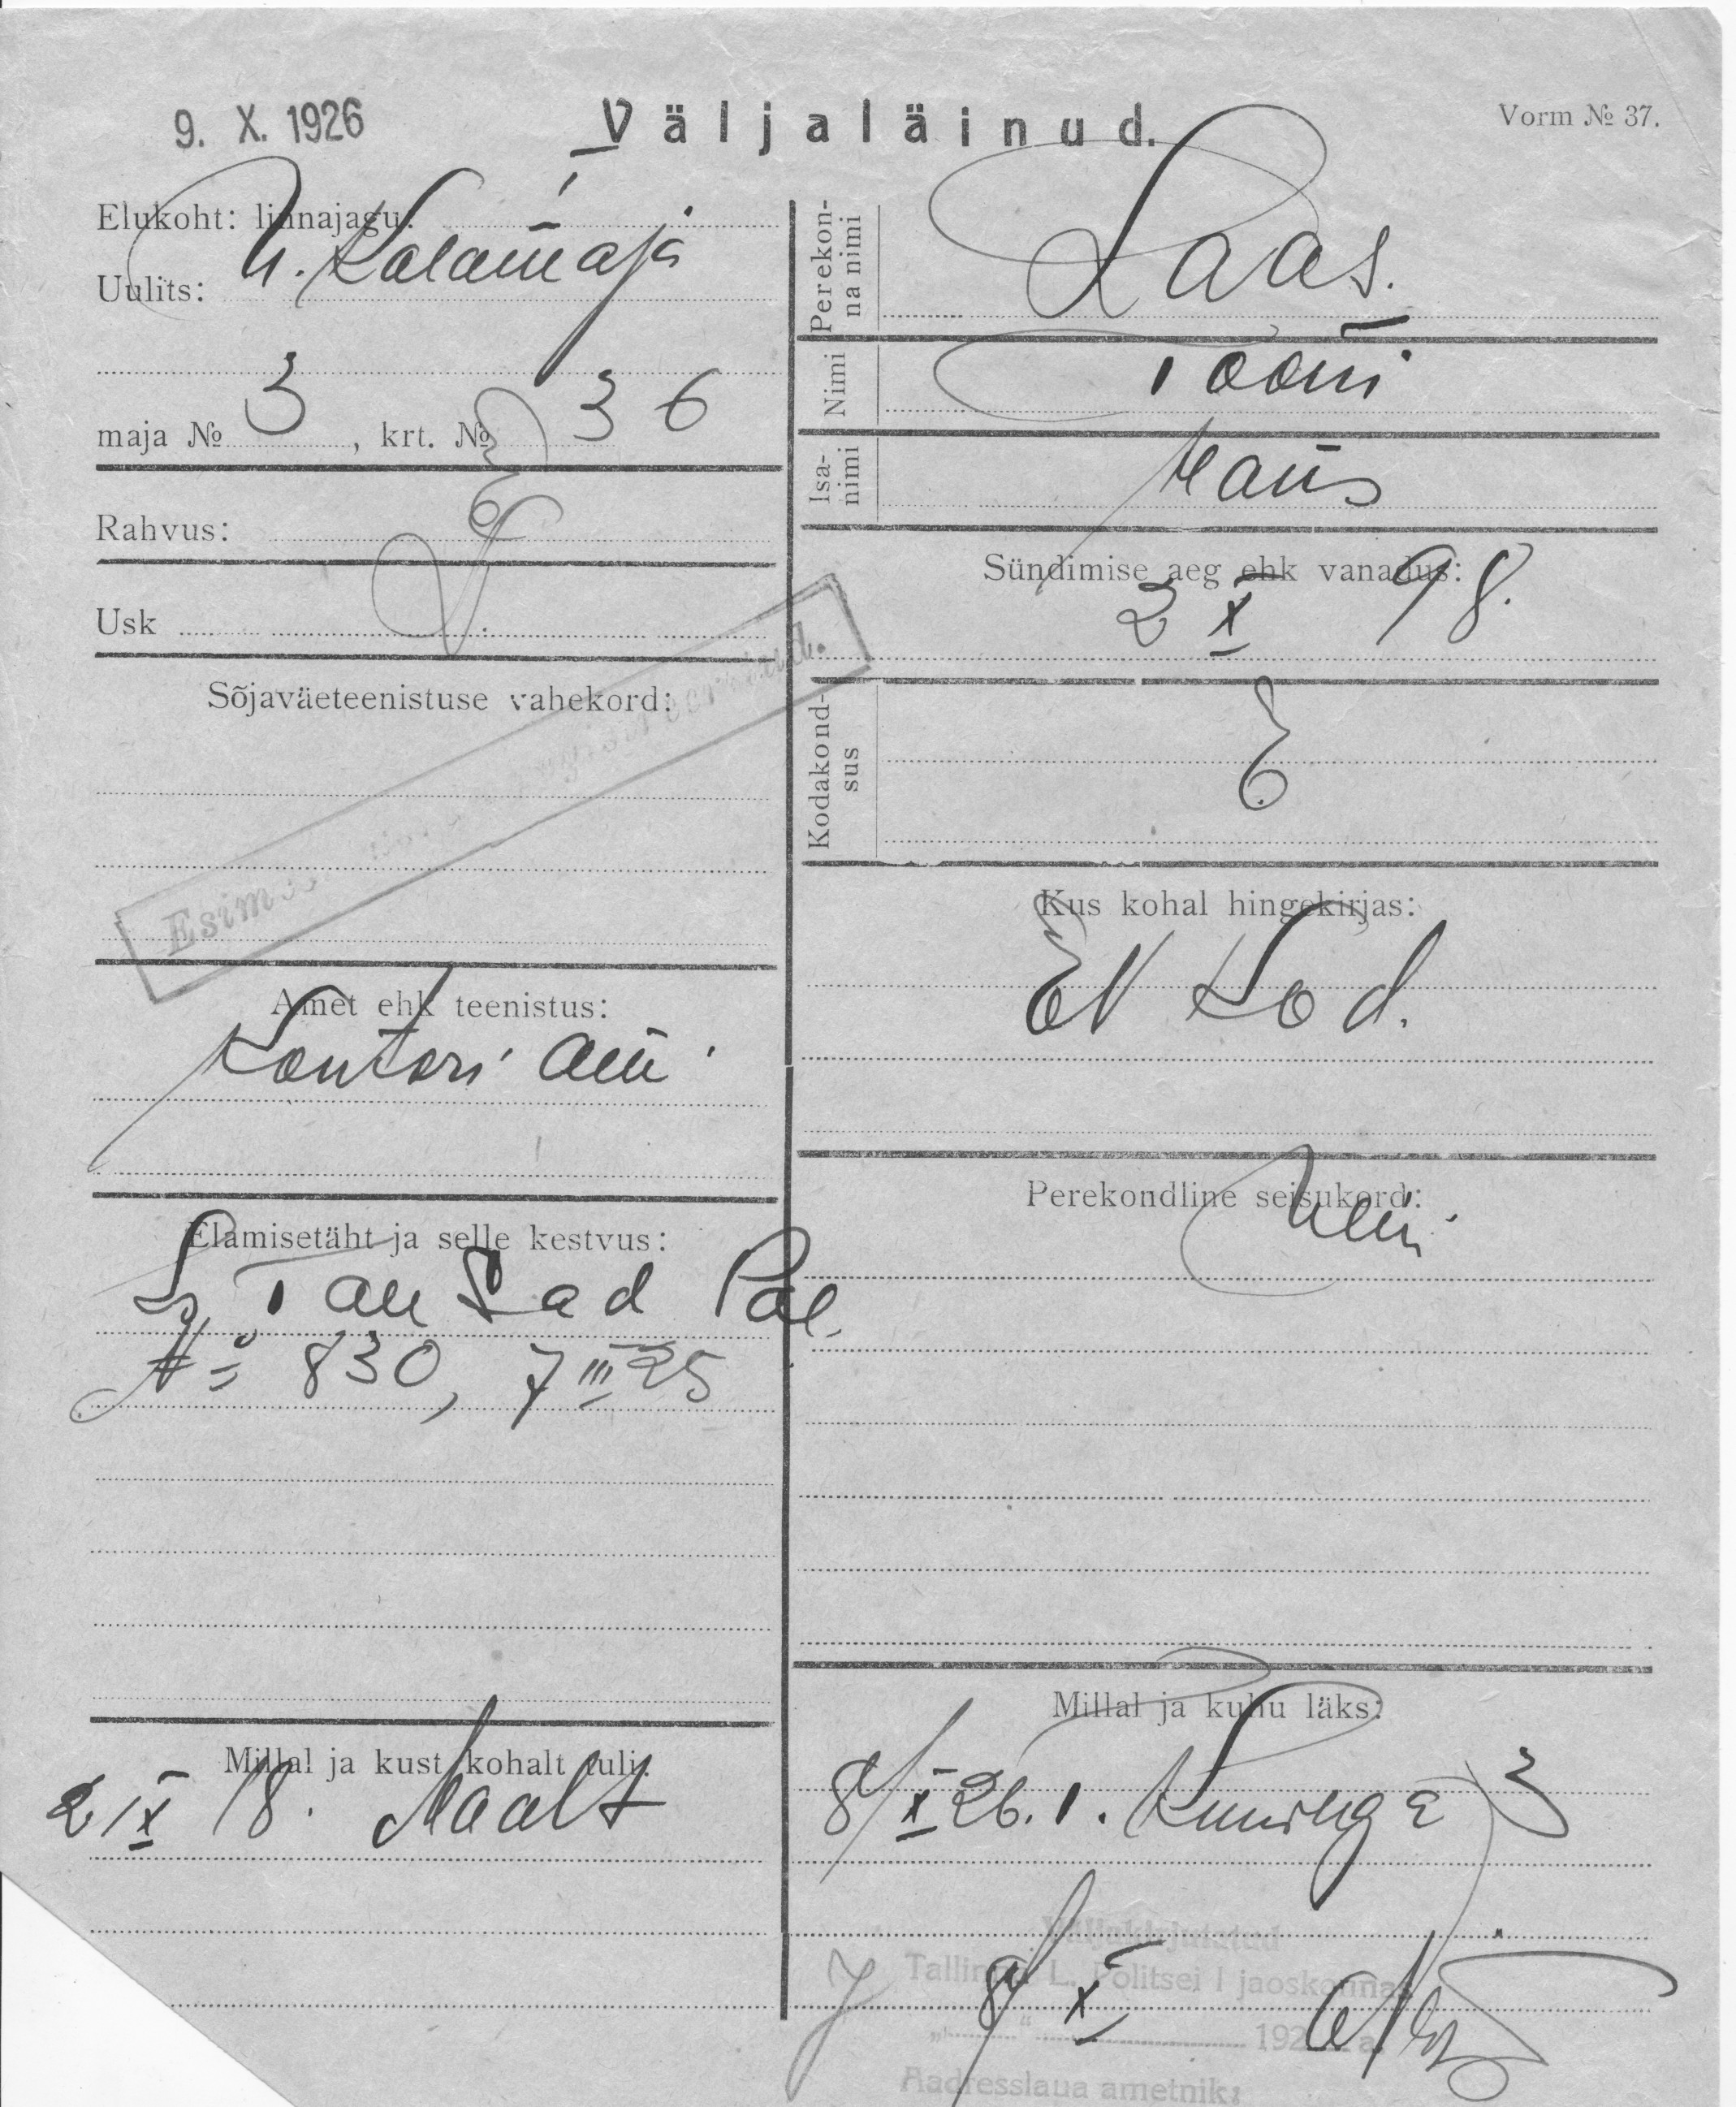 9. X. 1926
Väljaläinud.
Vorm № 37.
Elukoht: linnajagu:
Uulits: V. Kalamaja
maja № 3, krt. № 36
Rahvus: E
Usk
Sõjaväeteenistuse vahekord:
Amet ehk teenistus:
Kontori am.
Elamisetäht ja selle kestvus:
Tall Sad Pol.
№ 830, 7 III 25
Millal ja kust kohalt tuli:
2/X 18. Maalt
Perekonna nimi Laas.
Nimi Tooni
Isanimi Hans
Sündimise aeg ehk vanadus:
2 X 98.
Kodakondsus
E
Kus kohal hingekirjas:
EV Kod.
Perekondline seisukord:
Millal ja kuhu läks:
8/X 26. 3
Väljakirjutatud
Tallinna L. Politsei I jaoskonnas
8/X 192 a.
Aadresslaua ametnik: